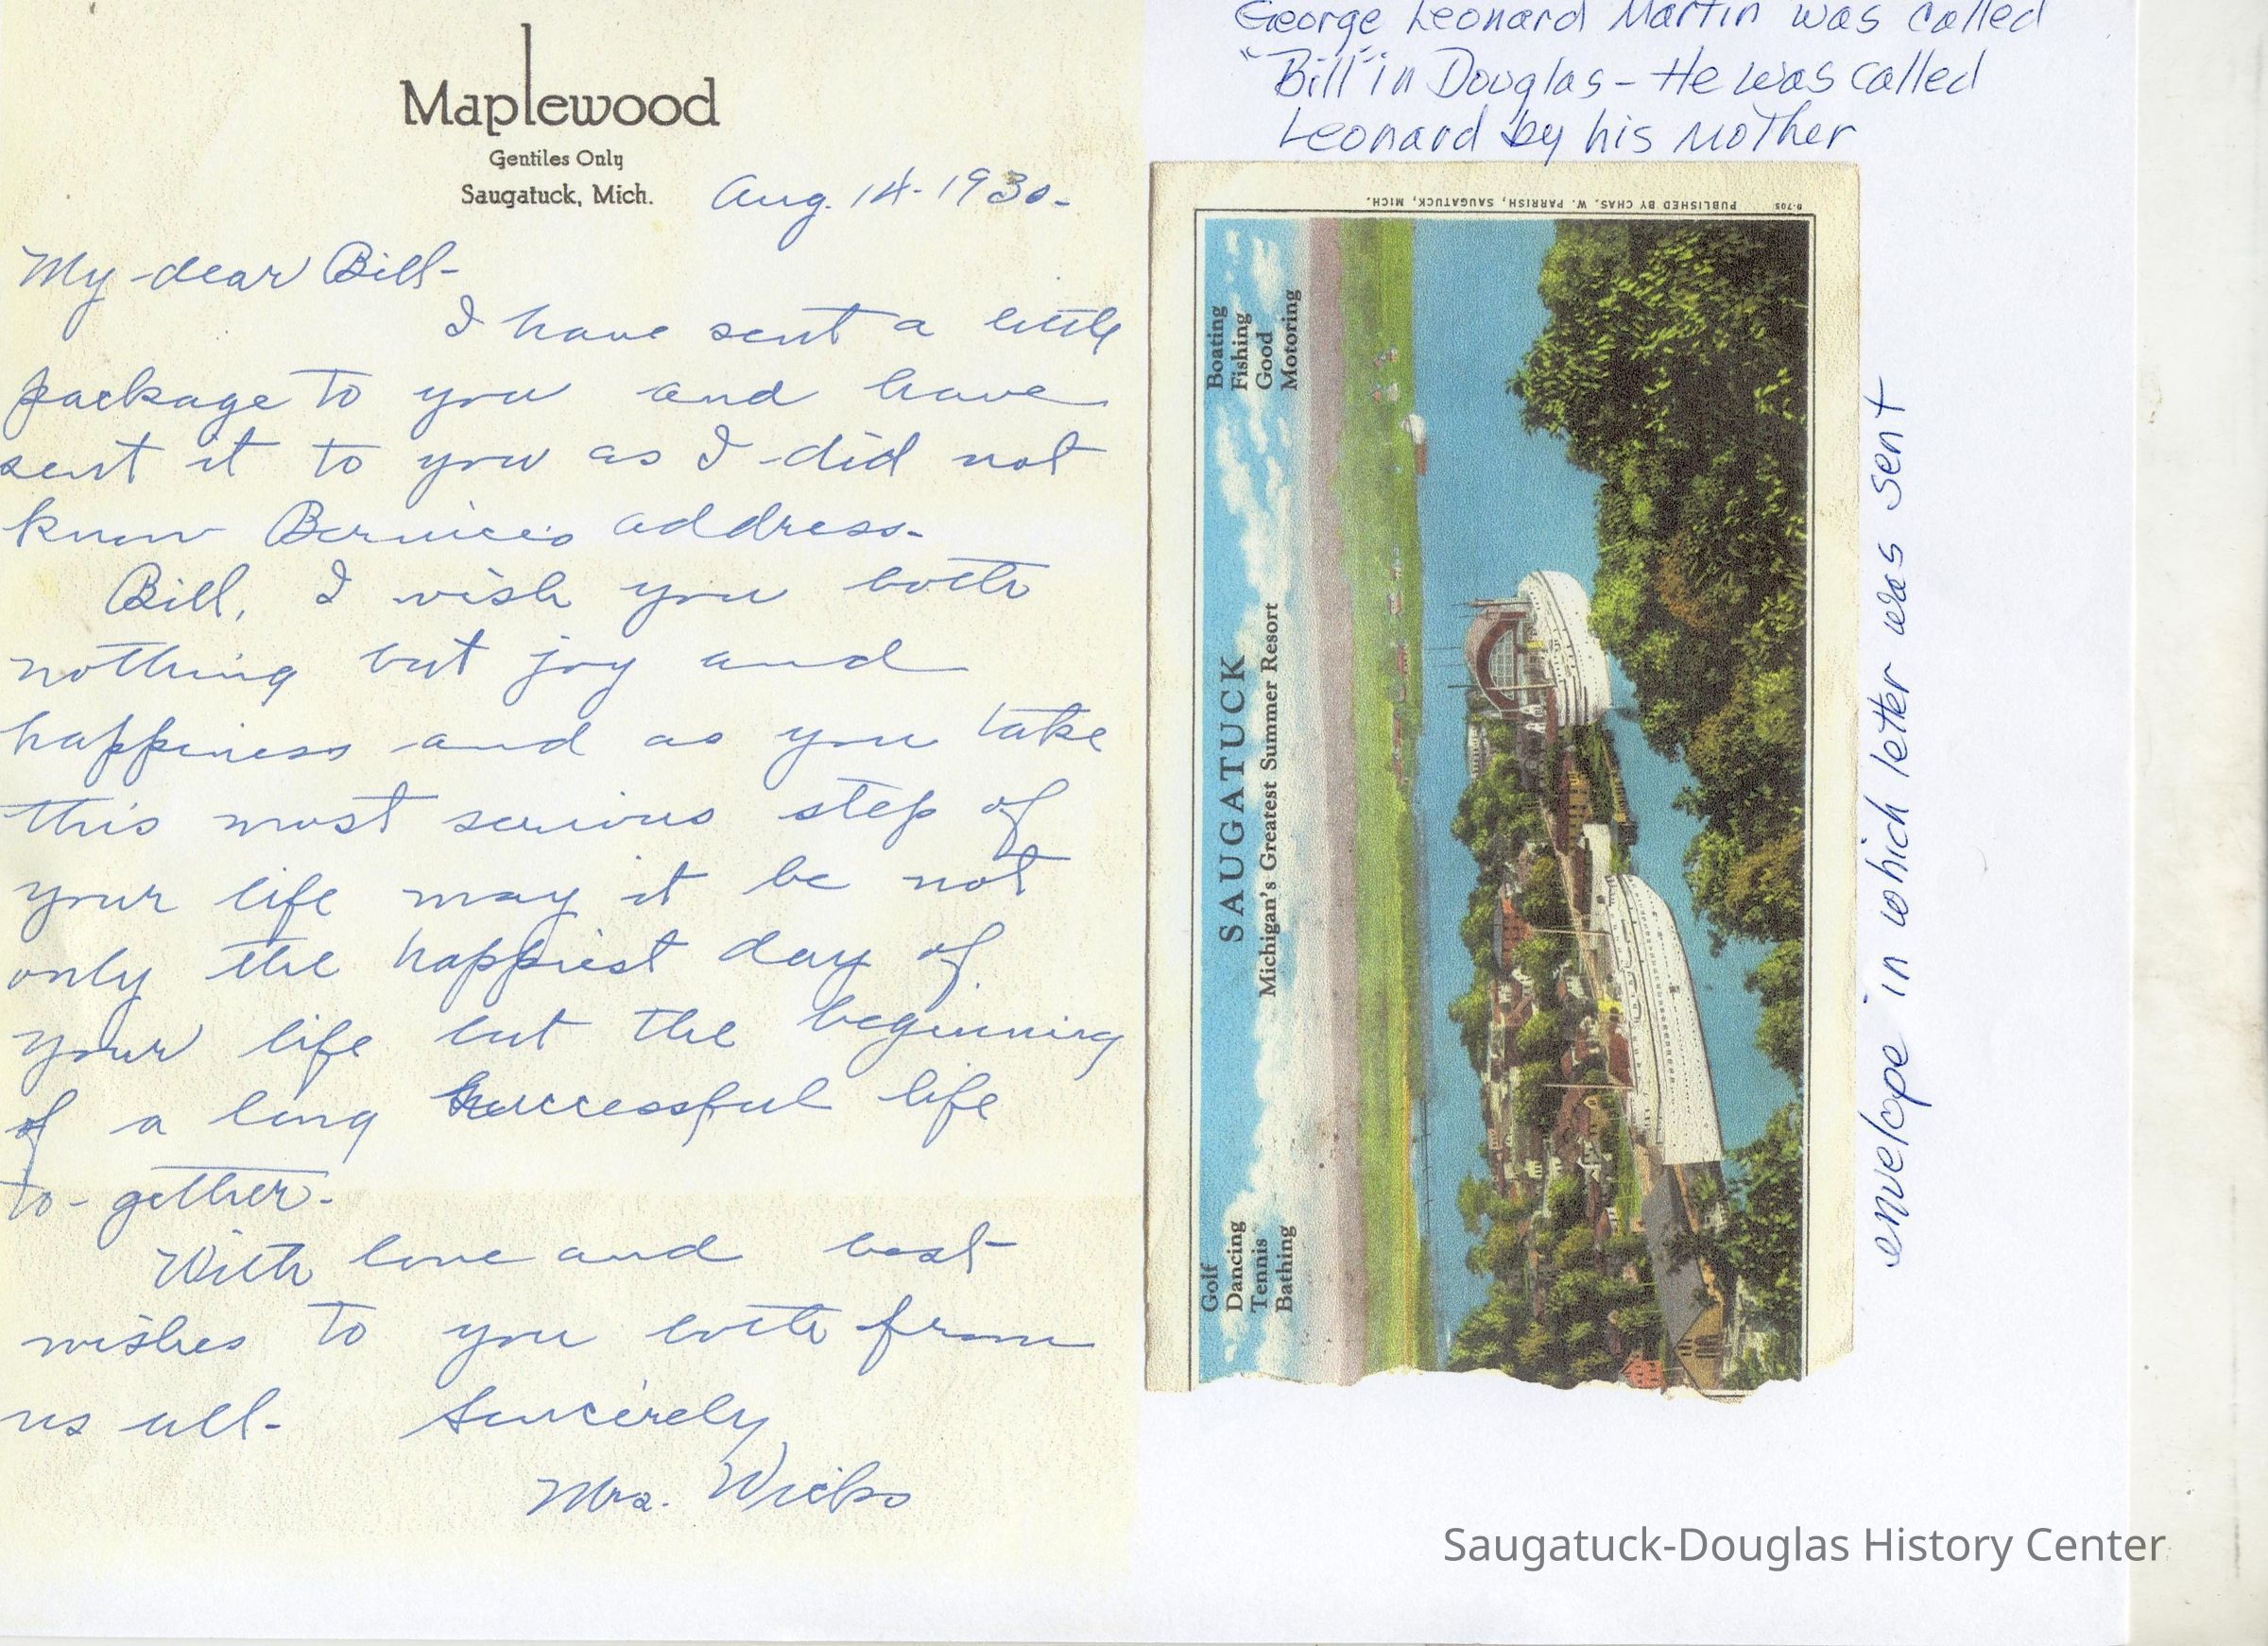 Maplewood
Gentiles Only
Saugatuck, Mich.
Aug. 14 - 1930 -
My dear Bill -
I have sent a little
package to you and have
sent it to you as I did not
know Bernice's address.
Bill, I wish you both
nothing but joy and
happiness and as you take
this most serious step of
your life may it be not
only the happiest day of
your life but the beginning
of a long successful life
to-gether -
With love and best
wishes to you both from
us all - Sincerely
Mrs. Wicks
George Leonard Martin was called
"Bill" in Douglas - He was called
Leonard by his Mother
PUBLISHED BY CHAS. W. PARRISH, SAUGATUCK, MICH.
Golf
Dancing
Tennis
Bathing
SAUGATUCK
Michigan's Greatest Summer Resort
Boating
Fishing
Good
Motoring
envelope in which letter was sent
Saugatuck-Douglas History Center